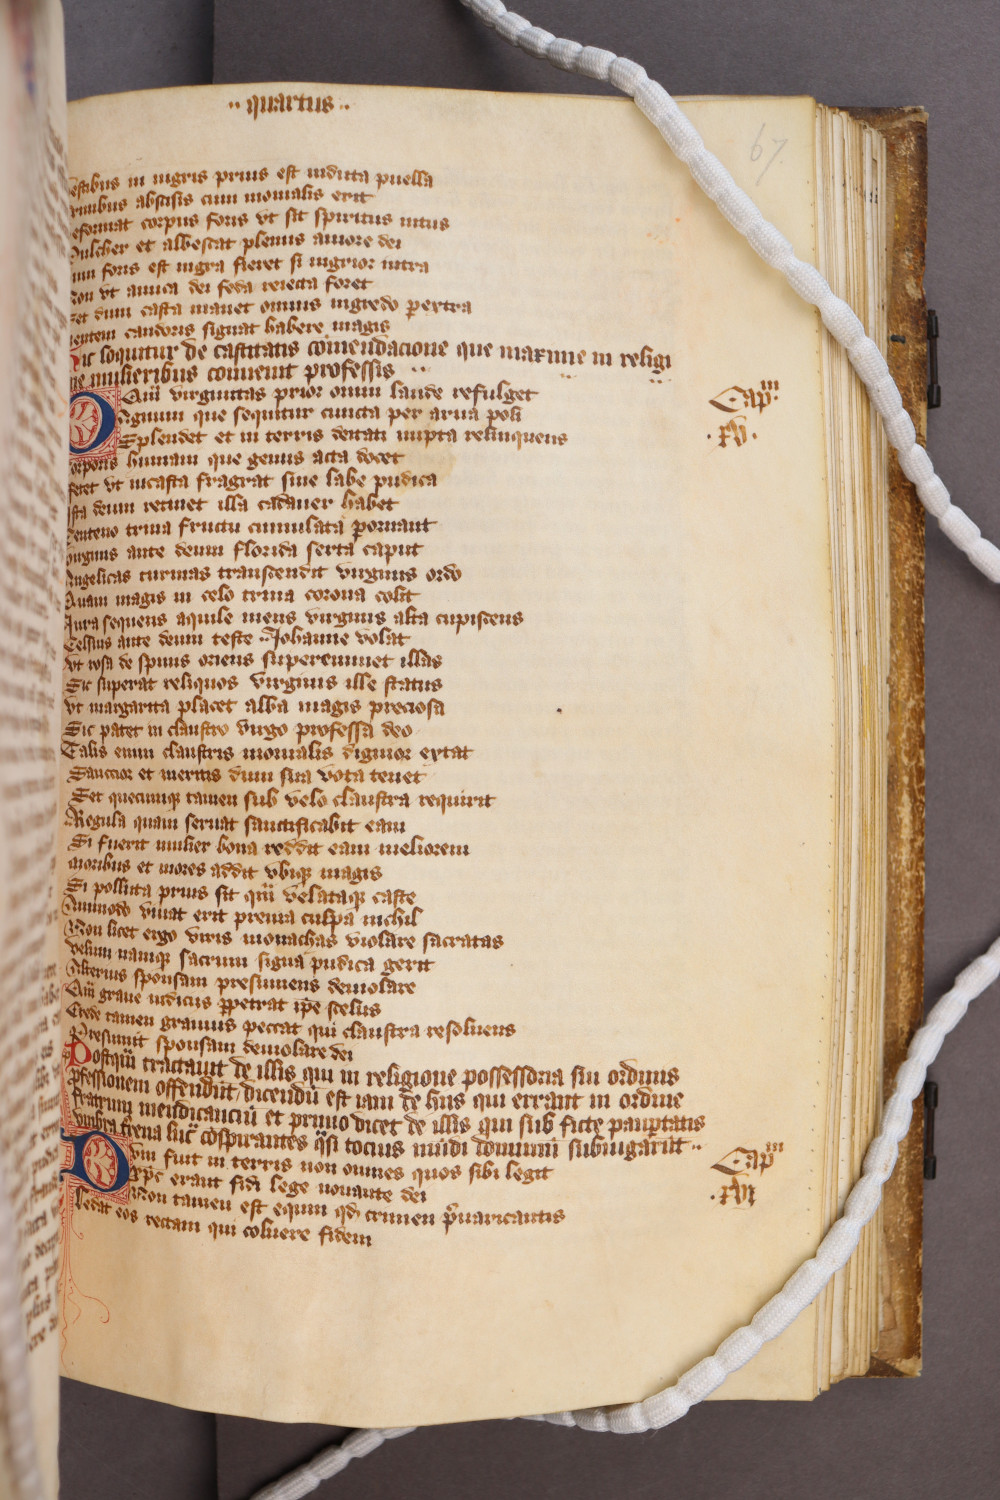 ·· quartus ··
67.
estibus in nigris prius est induta puella
rinibus abscisis cum monialis erit
eformat corpus foris vt sit spiritus intus
ulcher et albescat plenus amore dei
foris est nigra fieret si nigrior intra
on vt amica dei feda reiecta foret
et dum casta manet omnis nigredo pertra
entem candoris signat habere magis
ic loquitur de castitatis comendacione que maxime in religi
ne mulieribus conuenit professis ··
O Qͣm virginitas prior omni laude refulget
Agnum que sequitur cuncta per arua poli
Splendet et in terris deitati nupta relinquens
orporis humani que genus acta docet
fetet vt incasta fragrat sine labe pudica
sta deum retinet illa cadauer habet
Centeno trina fructu cumulata pornant
virginis ante deum florida serta caput
Angelicas turmas transcendit virginis ordo
Quam magis in celo trina corona colit
Aura sequens aquile mens virginis alta cupiscens
Celsius ante deum teste Johanne volat
vt rosa de spinis oriens supereminet illas
Sic superat reliquos virginis ille status
vt margarita placet alba magis preciosa
Sic patet in claustro virgo professa deo
Talis enim claustris monialis dignior extat
Sanccior et meritis dum sua vota tenet
Set quecumque tamen sub velo claustra requirit
Regula quam seruat sanctificabit eam
Si fuerit mulier bona reddit eam meliorem
moribus et mores addit vbique magis
Si polluta prius sit quͣm velataque caste
Ammodo viuat erit preuia culpa nichil
Non licet ergo viris monachas violare sacratas
velum namque sacrum signa pudica gerit
Alterius sponsam presumens demolare
Qͣm graue iudicius ꝑpetrat ipe scelus
Crede tamen grauius peccat qui claustra resoluens
Presumit sponsam demolare dei
Postqͣm tractauit de illis qui in religione possessoria sui ordinis
pfessionem offendūt dicendū est iam de hiis qui errant in ordine
fratrum mendicanciū et primo dicet de illis qui sub ficte pauptatis
vmbra t̄rena luc̄ cōspirantes qͣsi tocius mūdi dominiū subiugarūt ··
D um fuit in terris non omnes quos sibi legit
Xpc erant fidi lege nouante dei
Non tamen est equm qd crimen p̄uaricantis
Ledat eos rectam qui coluere fidem
Capᵐ
· xv ·
Capᵐ
· xvi